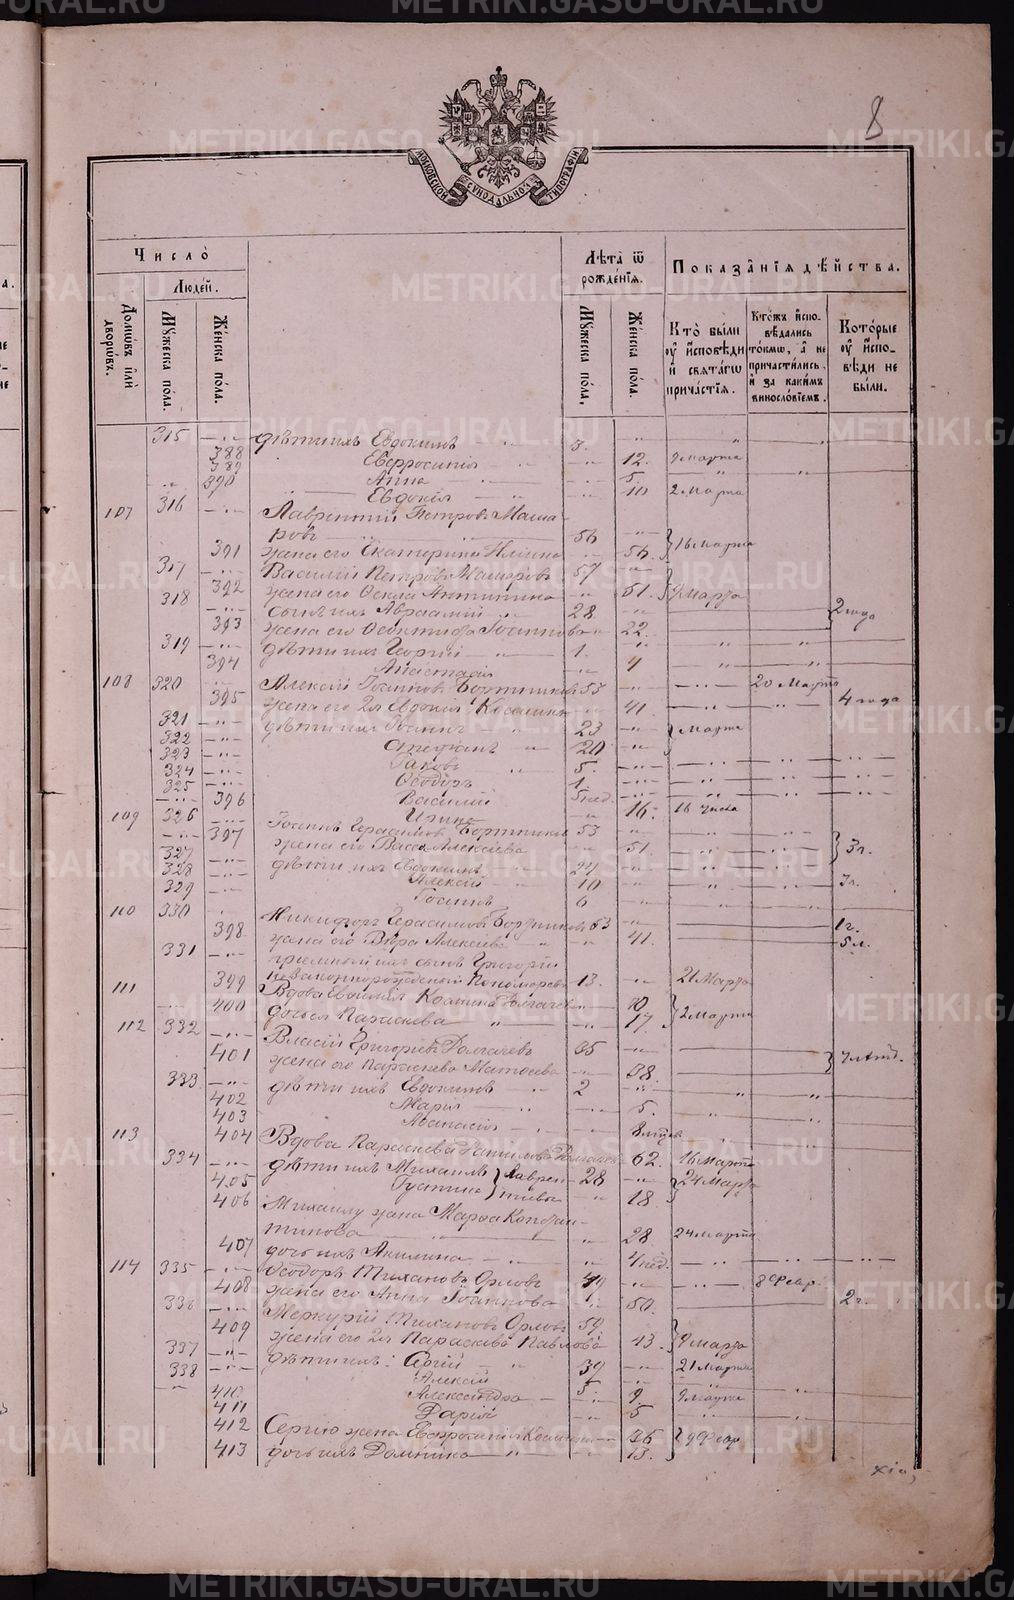 METRIKI.GASO-URAL.RU
8
МОСКОВСКОЙ СѴНОДАЛЬНОЙ ТИПОГРАФІИ
Число̀
Людей.
Домѡвъ и҆лѝ дворѡвъ.
Мꙋжеска по́ла.
Же́нска по́ла.
Лѣ̑та ѿ рождє́нїѧ.
Мꙋжеска по́ла,
Же́нска по́ла.
Показа̑нїѧ дѣ́йства.
Кто̀ бы́ли ᲂу҆ и҆сповѣди и҆ свѧта́гѡ прича́стїѧ.
Кто́жъ и҆спо-вѣдались то́кмѡ, а҆ не причасти́лись, и҆ за каки́мъ винослѡ́вїемъ.
Кото́рые ᲂу҆ и҆спо-вѣди не бы́ли.
315 дѣти ихъ Евдокимъ 3.
388 Евфросинія 12. 9 марта
389 Анна 5.
390 Евдокія 10 2 Марта
107 316 Лаврентій Петровъ Маша-
ровъ 56
391 жена его Екатерина 56. 16 Марта
317 Василій Петровъ Машаровъ 57
392 жена его Антипина 51. 9 Марта
318 сынъ ихъ Авраамій 28 2 года
393 жена его Іоаннова 22.
319 дѣти ихъ Георгій 1.
394 Анастасія 4
108 320 Алексій Іоанновъ Бортниковъ 53 20 Марта
395 жена его 2я Евдокія Косьмина 41. 4 года
321 дѣти ихъ Іоаннъ 23 Марта
322 Стефанъ 20
323 Іаковъ 5.
324 Ѳеодоръ 1.
325 Василій 5 нед.
396 Ирина 16. 16 числа
109 326 Іоаннъ Герасимовъ Бортниковъ 53
397 жена его Васса Алексѣева 51. 3 г.
327 дѣти ихъ Евдокимъ 24
328 Алексій 10 3 г.
329 Іоаннъ 6
110 330 Никифоръ Герасимовъ Бортниковъ 53 1 г.
398 жена его Вѣра Алексѣева 41. 5 л.
331 пріемный ихъ сынъ Григорій
незаконнорожденный Пономаревъ 13. 21 Марта
111 399 Вдова Евфимія Козмина
400 дочь ея Параскева 17. 2 Марта
112 332 Власій Григорьевъ Долгачевъ 35
401 жена его Параскева Матѳеева 38.
333 дѣти ихъ Евдокимъ 2
402 Марія 5.
403 Аѳанасія
113 404 Вдова Параскева 62. 16 Марта
334 дѣти ихъ Михаилъ Лаврен- 28 24 Марта
405 Іустина тіевы 18
406 Михаилу жена Марѳа Констан-
тинова 28 24 марта
407 дочь ихъ Акилина 4 нед.
114 335 Ѳеодоръ Тихановъ Орловъ 49 8 Февр.
408 жена его Анна Іоаннова 50. 2 г.
336 Меркурій Тихановъ Орловъ 59
409 жена его 2я Параскева Павлова 43. 9 Марта
337 дѣти ихъ: Сергій 39 21 Марта
338 Алексій 5.
410 Александра 9. 9 марта
411 Дарія 5
412 Сергію жена Евфросинія 36
413 дочь ихъ Домника 13. 9 Февр